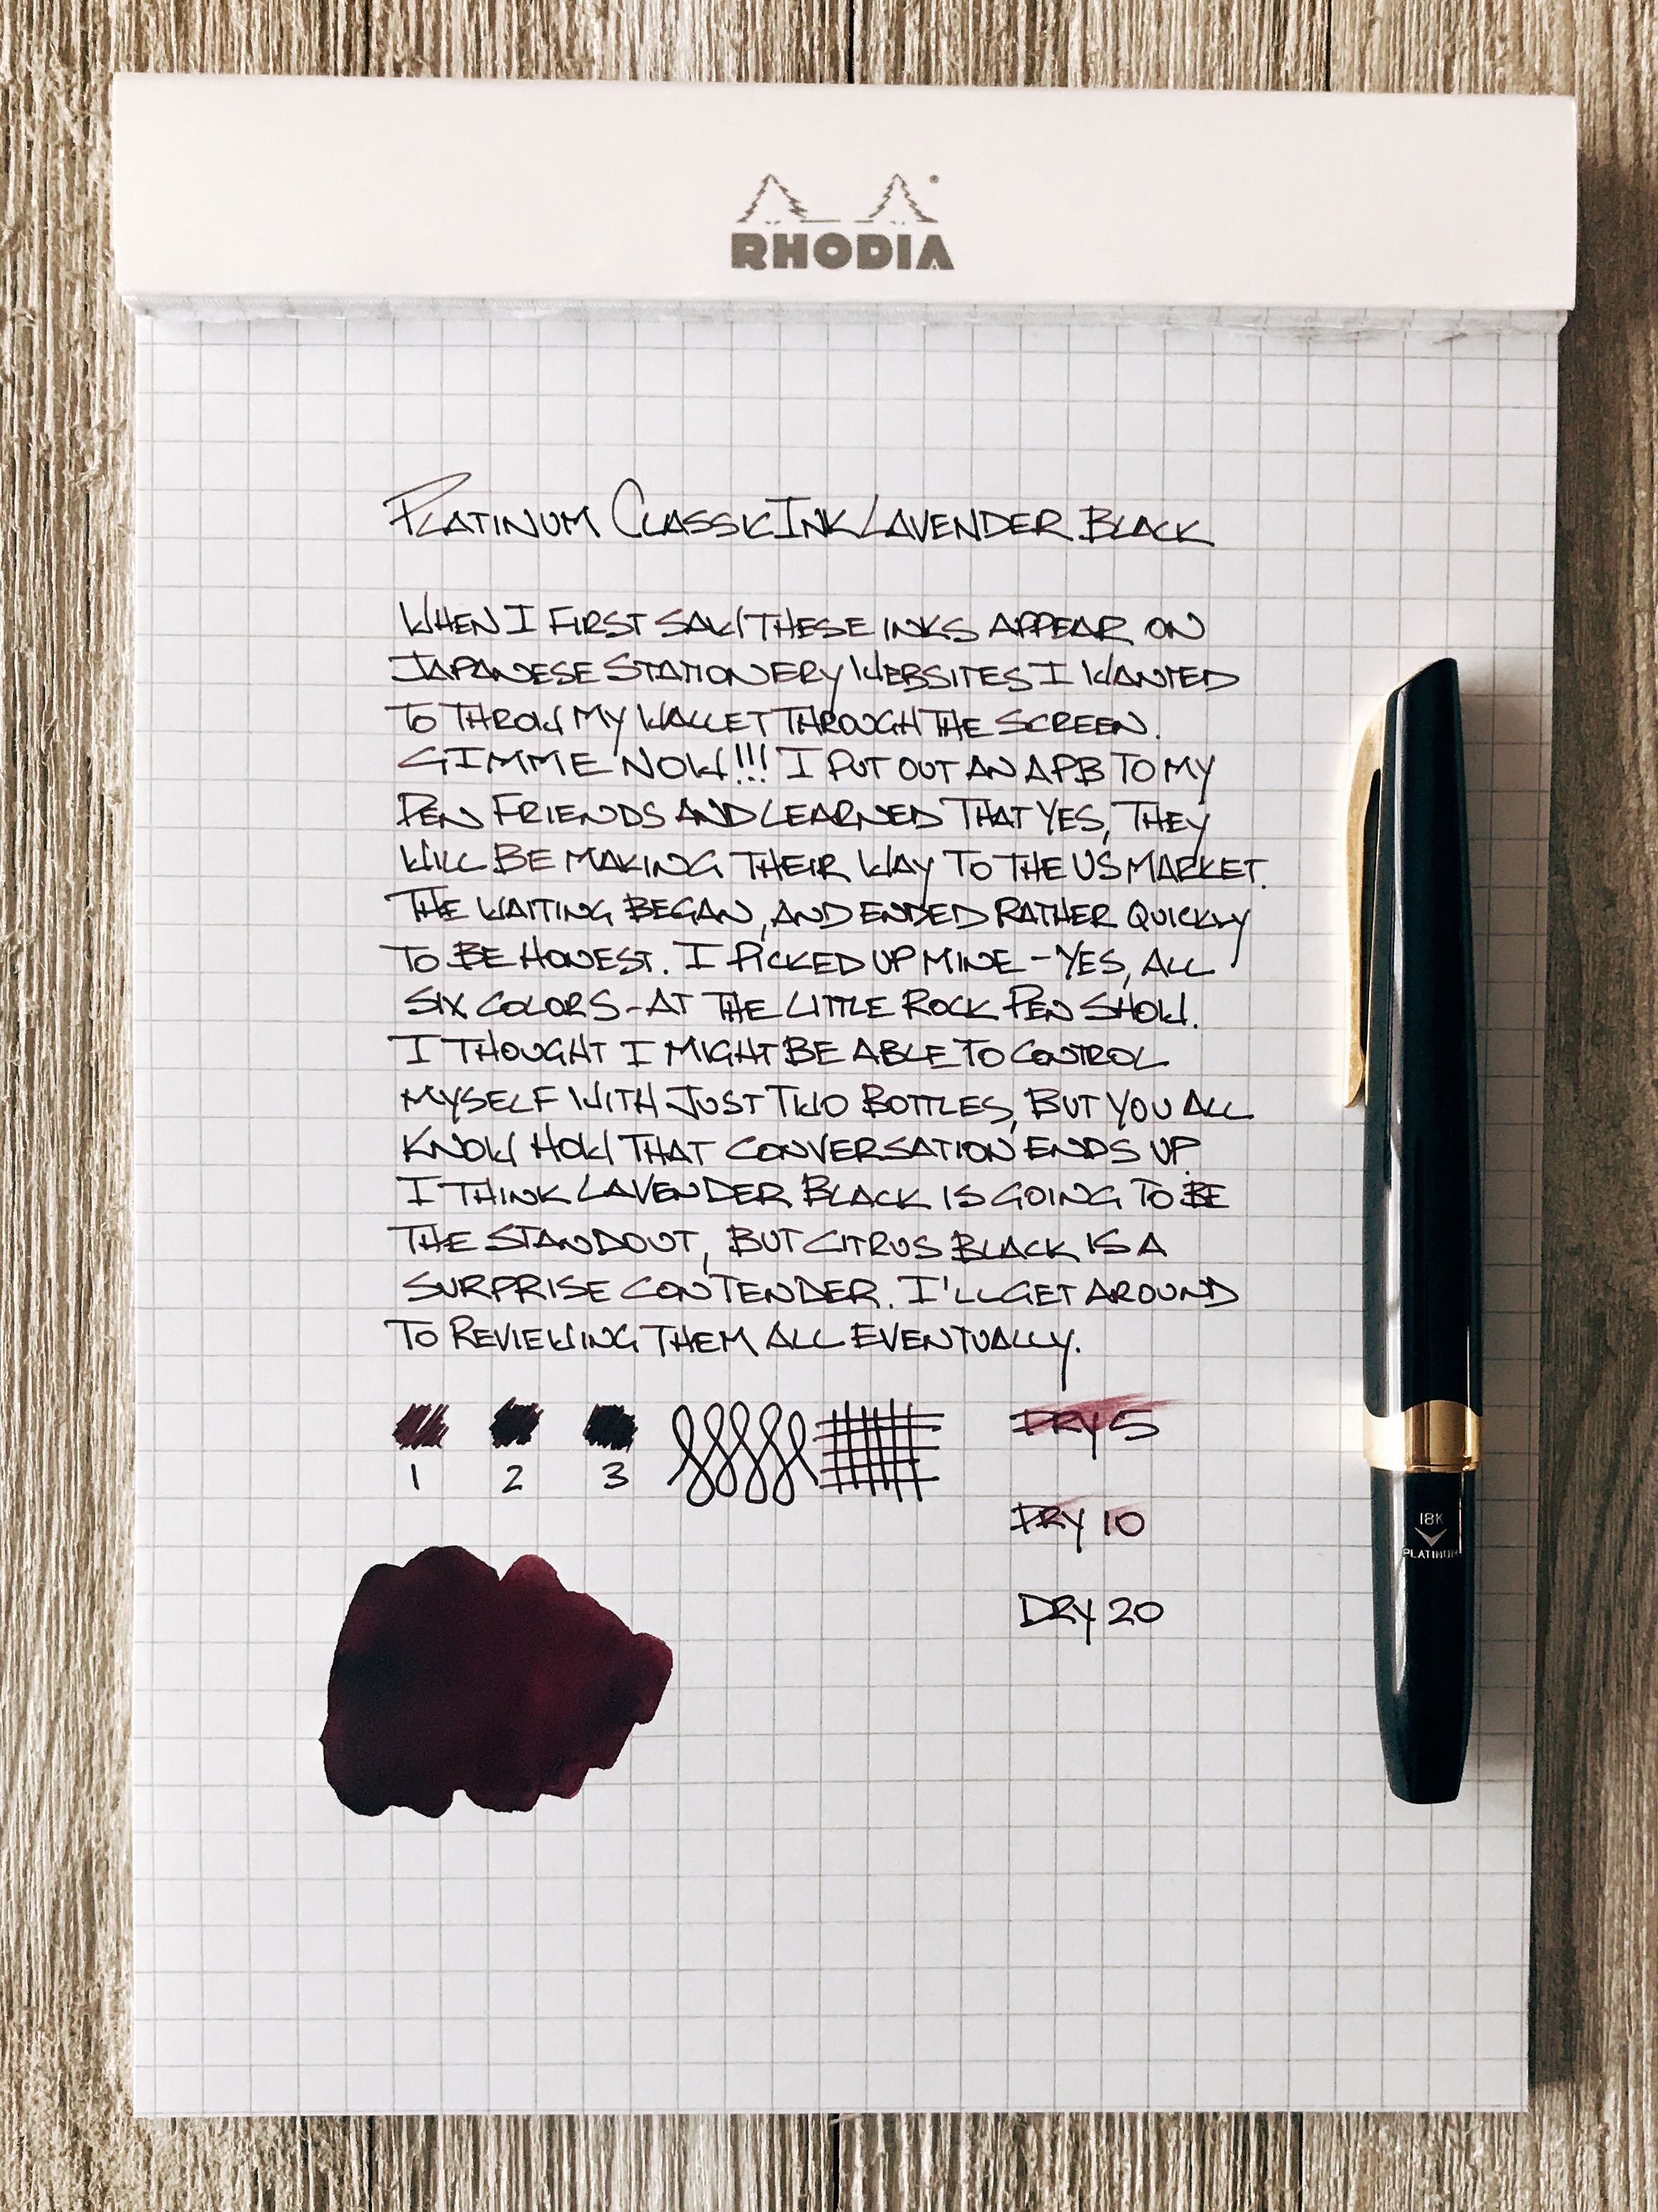 RHODIA
PLATINUM CLASSIC INK LAVENDER BLACK
WHEN I FIRST SAW THESE INKS APPEAR ON
JAPANESE STATIONERY WEBSITES I WANTED
TO THROW MY WALLET THROUGH THE SCREEN.
GIMME NOW!!! I PUT OUT AN APB TO MY
PEN FRIENDS AND LEARNED THAT YES, THEY
WILL BE MAKING THEIR WAY TO THE US MARKET.
THE WAITING BEGAN, AND ENDED RATHER QUICKLY
TO BE HONEST. I PICKED UP MINE - YES, ALL
SIX COLORS - AT THE LITTLE ROCK PEN SHOW.
I THOUGHT I MIGHT BE ABLE TO CONTROL
MYSELF WITH JUST TWO BOTTLES, BUT YOU ALL
KNOW HOW THAT CONVERSATION ENDS UP.
I THINK LAVENDER BLACK IS GOING TO BE
THE STANDOUT, BUT CITRUS BLACK IS A
SURPRISE CONTENDER. I'LL GET AROUND
TO REVIEWING THEM ALL EVENTUALLY.
1 2 3
DRY 5
DRY 10
DRY 20
18K
PLATINUM